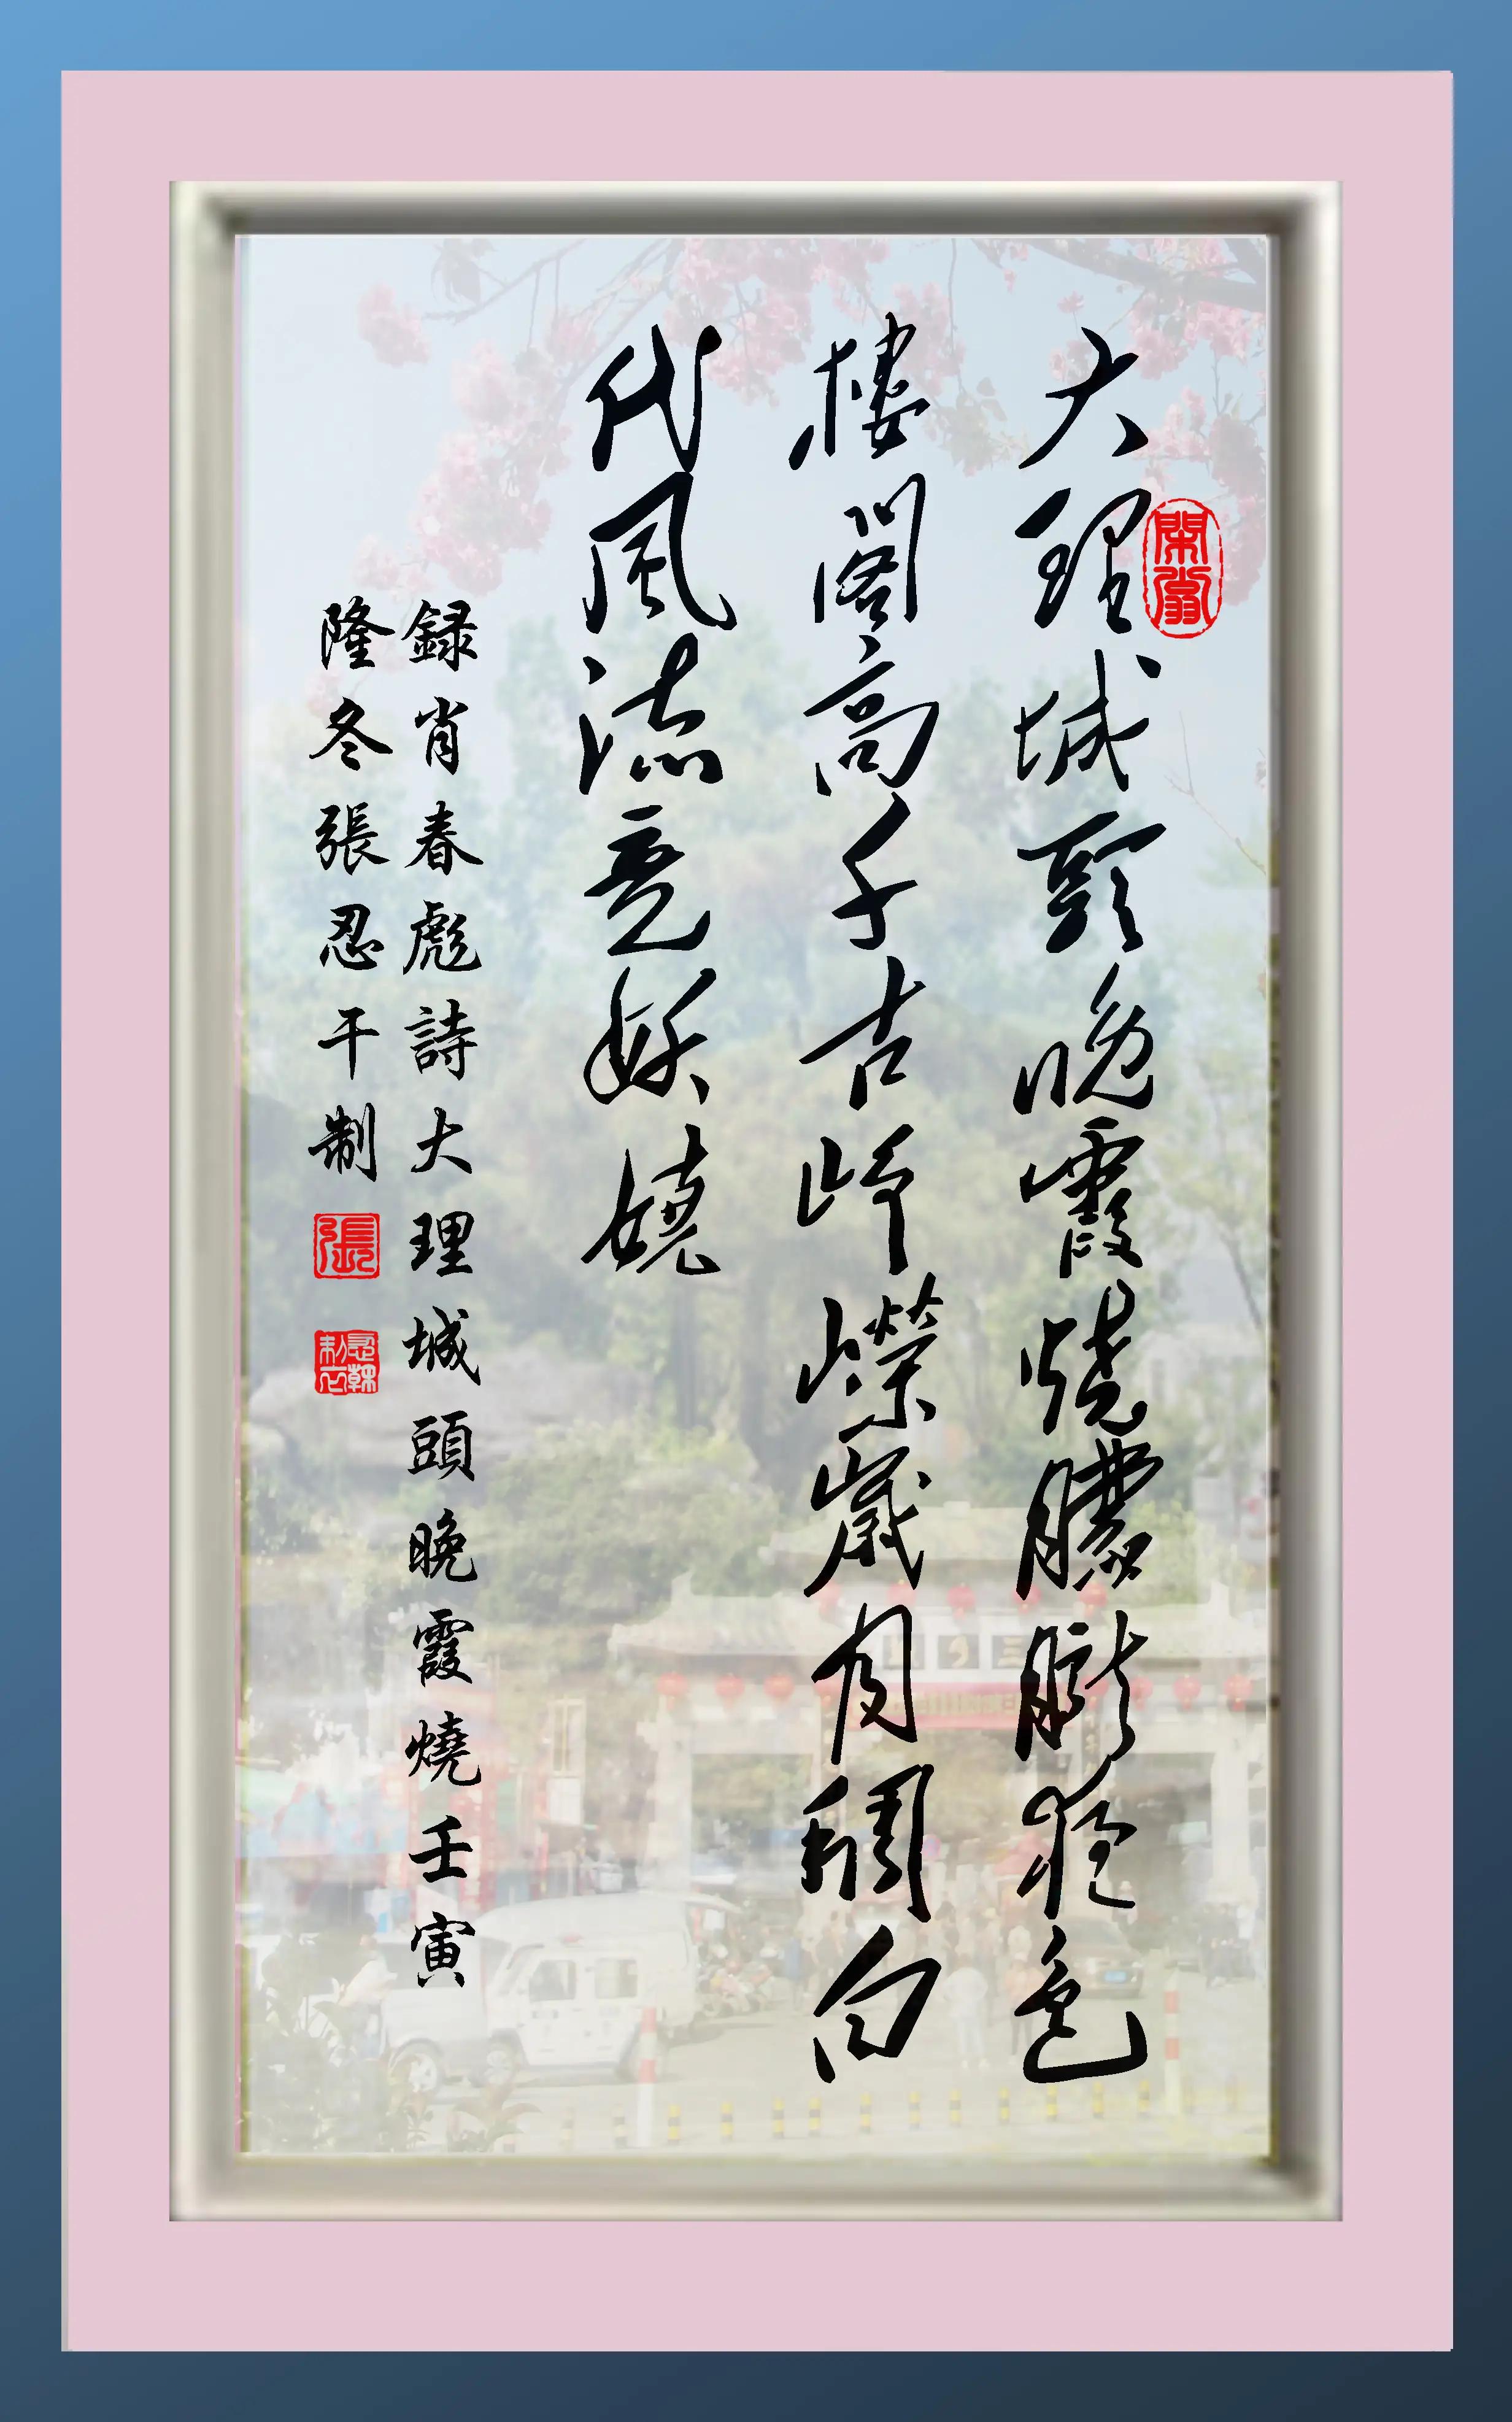 大理城頭晚霞燒朦朧夜色
樓閣高千古崢嶸歲月稠白
代風流竟妖嬈
録肖春彪詩大理城頭晚霞燒壬寅
隆冬張忍干制
張